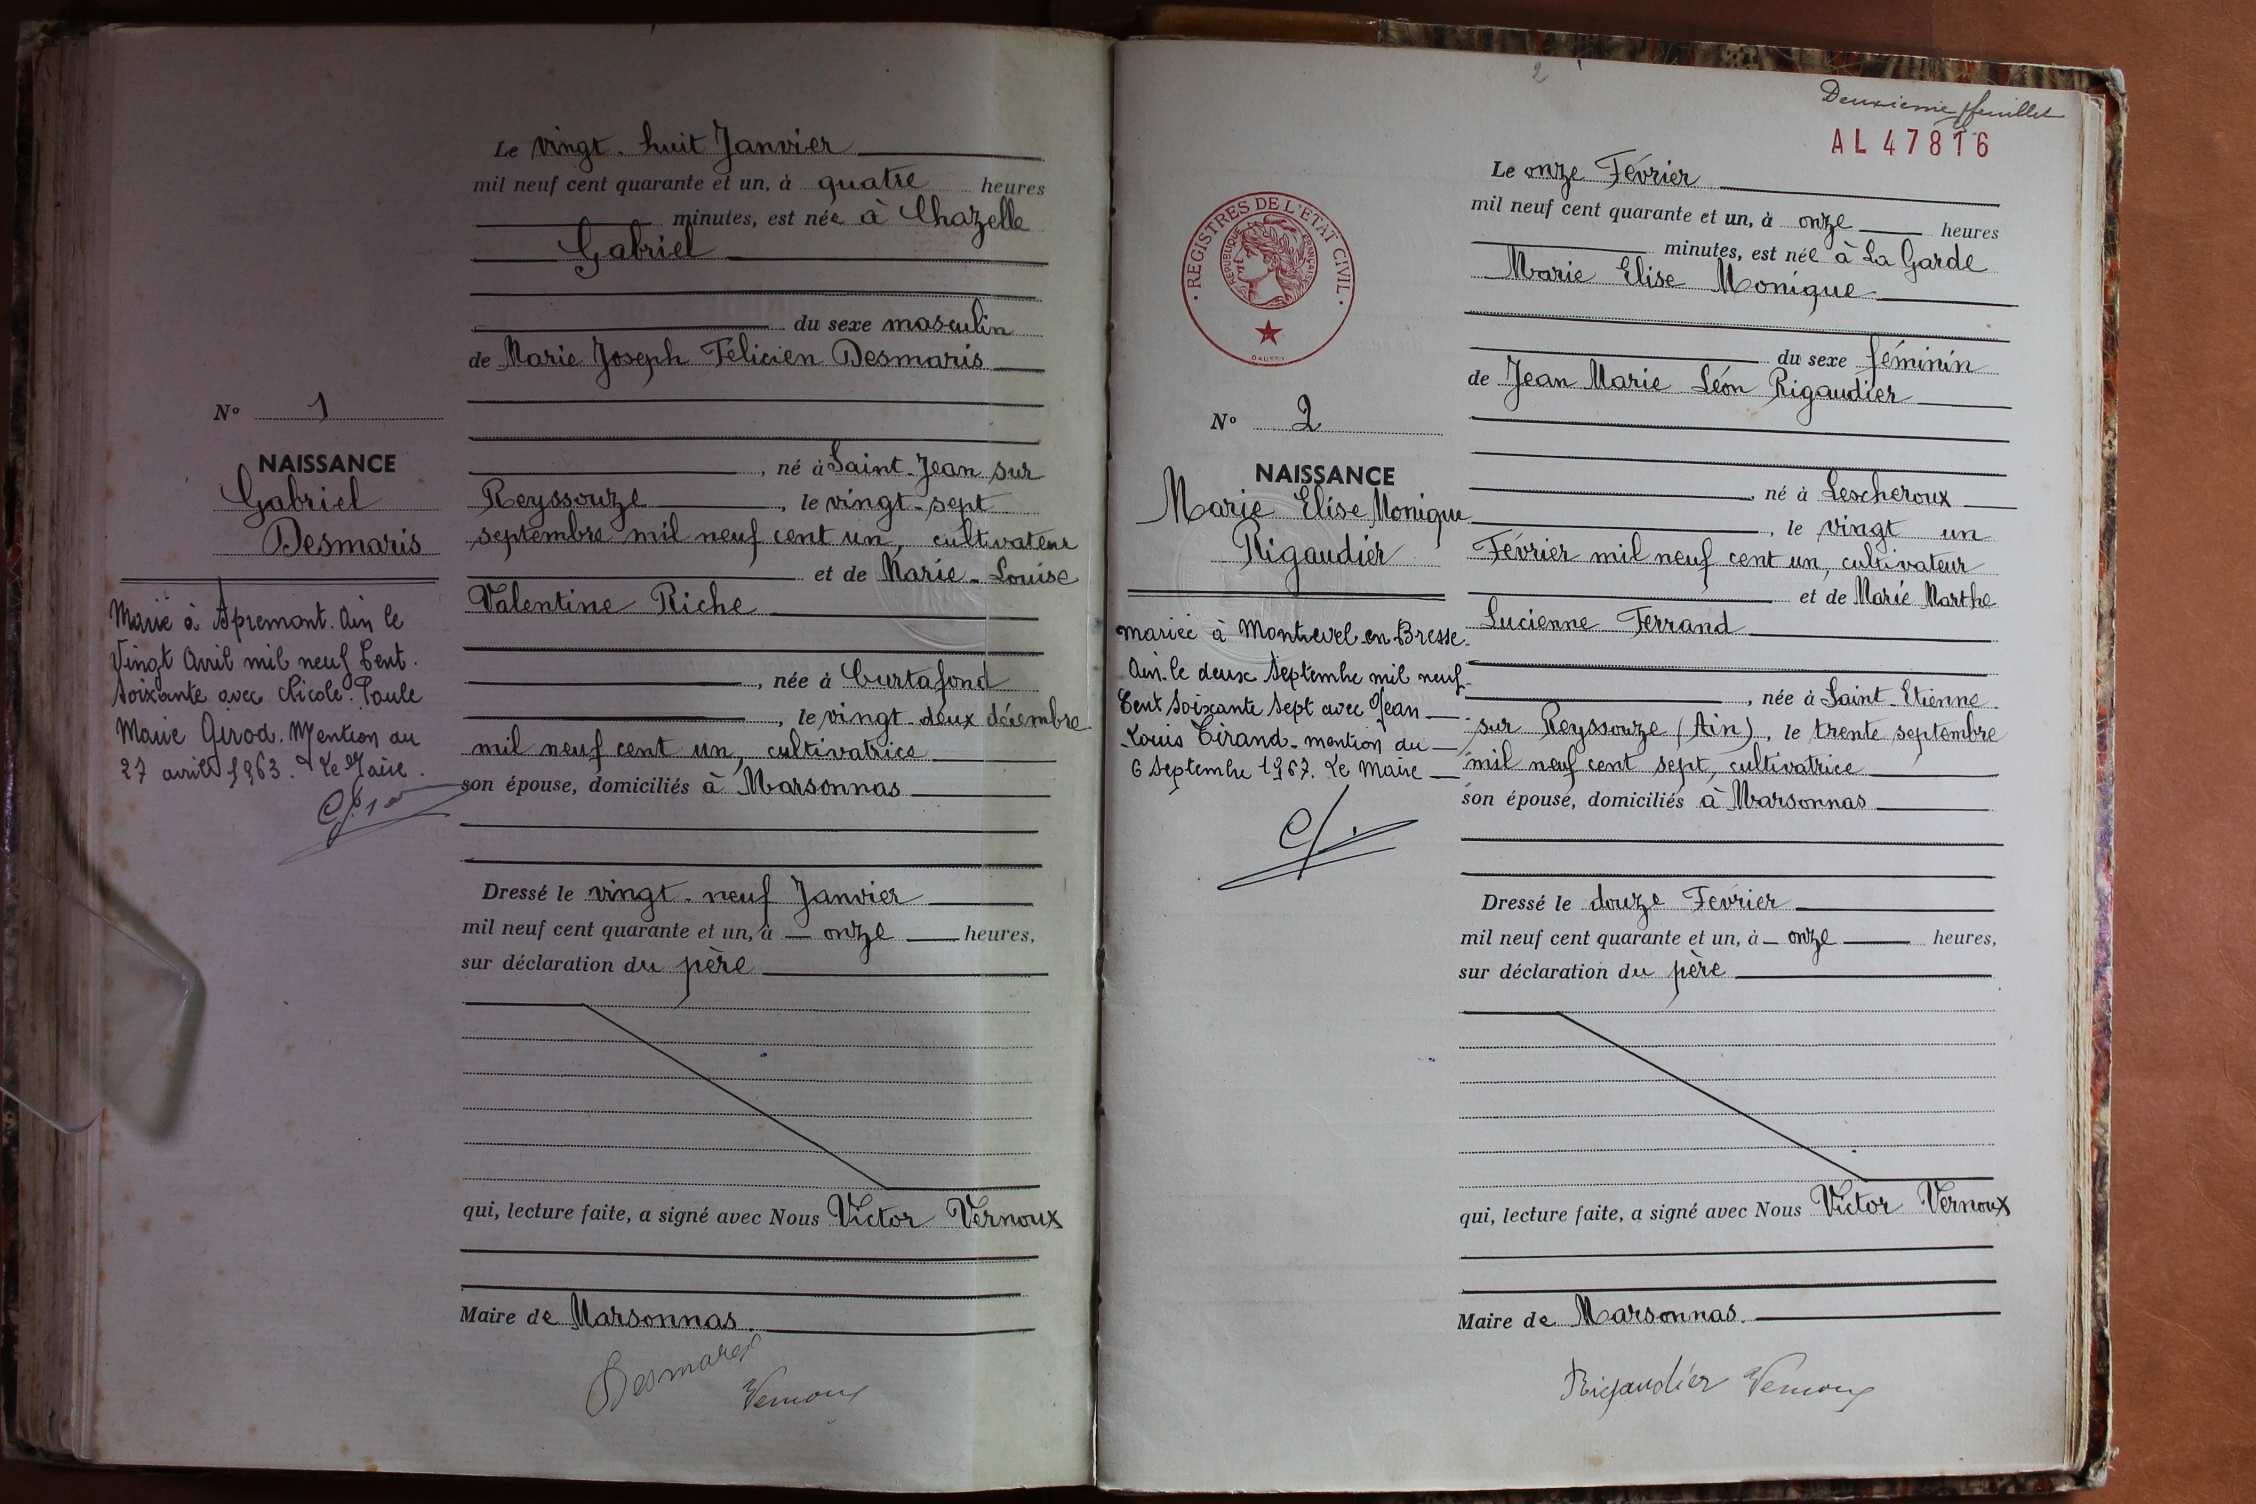 Le vingt-huit Janvier
mil neuf cent quarante et un, à quatre heures
minutes, est née à Chazelle
Gabriel
du sexe masculin
de Marie Joseph Félicien Desmaris
, né à Saint-Jean sur
Reyssouze, le vingt-sept
septembre mil neuf cent un, cultivateur
et de Marie-Louise
Valentine Riche
, née à Curtafond
, le vingt-deux décembre
mil neuf cent un, cultivatrice
son épouse, domiciliés à Marsonnas
Dressé le vingt-neuf Janvier
mil neuf cent quarante et un, à onze heures,
sur déclaration du père
qui, lecture faite, a signé avec Nous Victor Vernoux
Maire de Marsonnas.
Desmaris
Vernoux
N° 1
NAISSANCE
Gabriel
Desmaris
Marié à Apremont. Ain le
Vingt Avril mil neuf Cent.
Soixante avec Nicole. Paule
Marie Girod. Mention du
27 avril 1963. Le Maire.
2
Deuxième feuillet
AL 47816
REGISTRES DE L'ETAT CIVIL
REPUBLIQUE FRANÇAISE
Le onze Février
mil neuf cent quarante et un, à onze heures
minutes, est née à La Garde
Marie Elise Monique
du sexe féminin
de Jean Marie Léon Rigaudier
, né à Lescheroux
, le vingt un
Février mil neuf cent un, cultivateur
et de Marie Marthe
Lucienne Ferrand
, née à Saint-Etienne
sur Reyssouze (Ain), le trente septembre
mil neuf cent sept, cultivatrice
son épouse, domiciliés à Marsonnas
Dressé le douze Février
mil neuf cent quarante et un, à onze heures,
sur déclaration du père
qui, lecture faite, a signé avec Nous Victor Vernoux
Maire de Marsonnas.
Rigaudier Vernoux
N° 2
NAISSANCE
Marie Elise Monique
Rigaudier
mariée à Montrevel-en-Bresse.
Ain. le deux Septembre mil neuf-
Cent Soixante Sept avec Jean
Louis Tirand - mention du
6 Septembre 1967. Le Maire